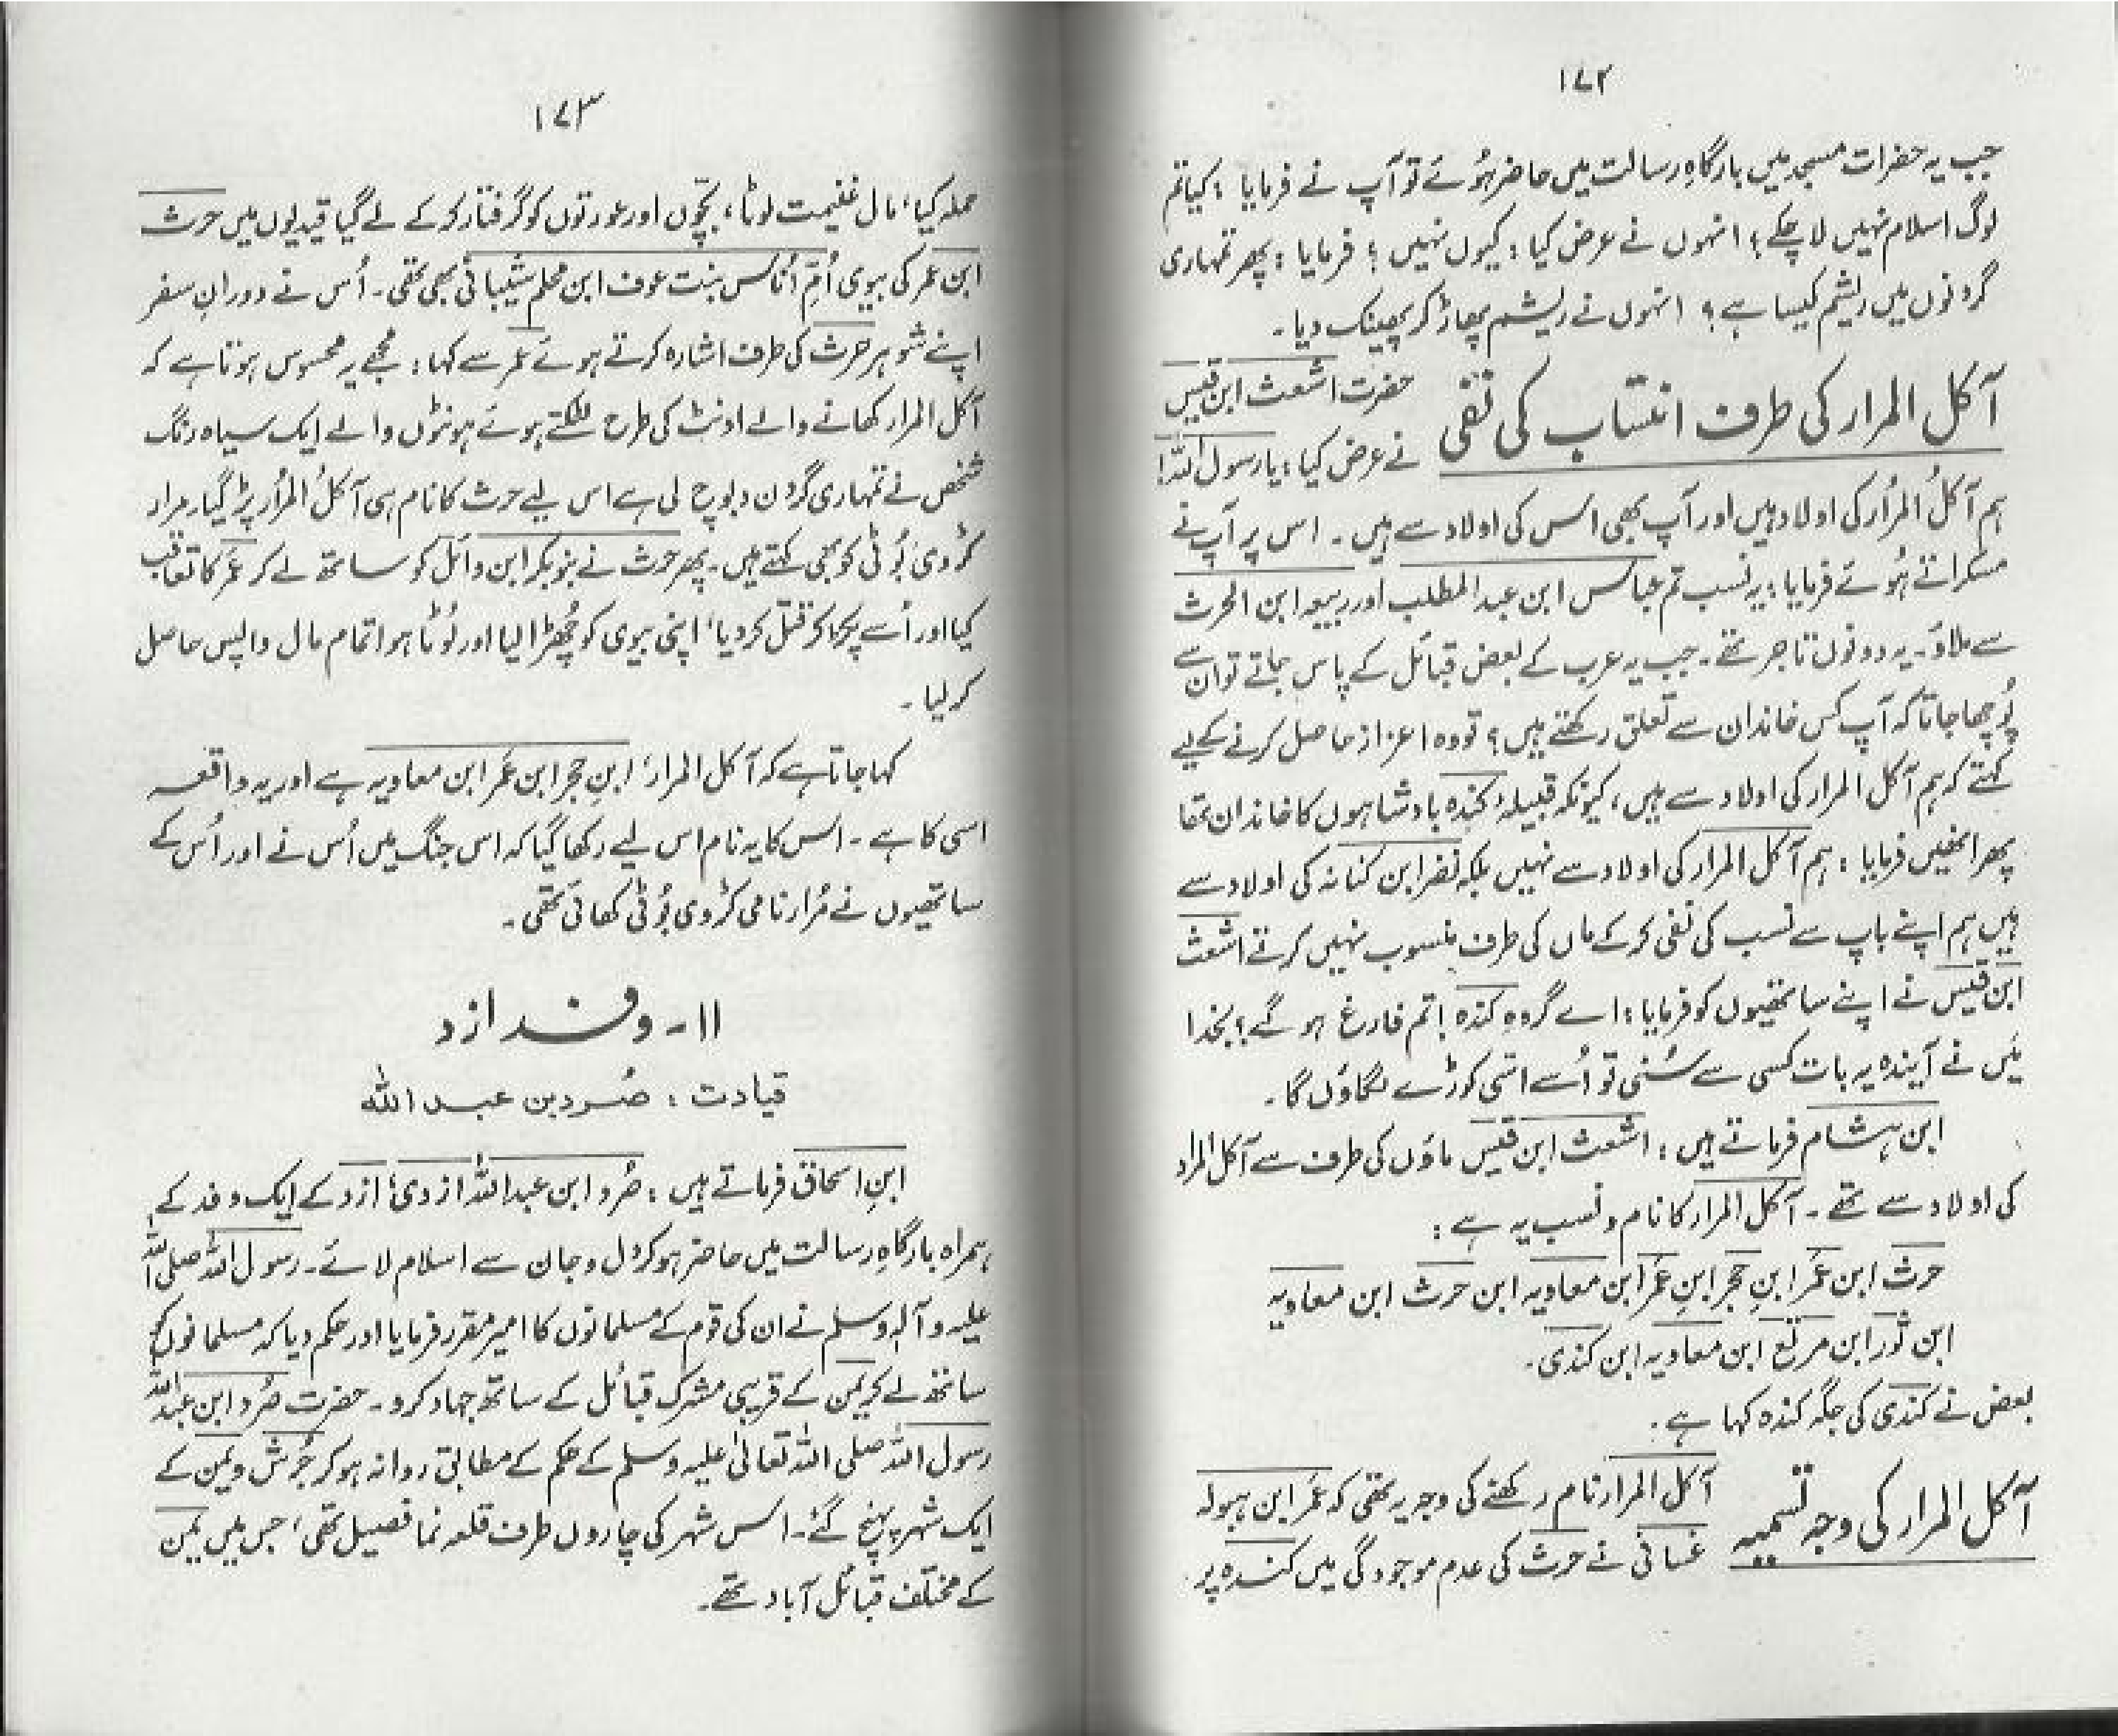 ۱۷۲
جب یہ حضرات مسجد میں بارگاہِ رسالت میں حاضر ہُوئے تو آپ نے فرمایا : کیا تم
لوگ اسلام نہیں لا چکے؟ انہوں نے عرض کیا : کیوں نہیں ؟ فرمایا : پھر تمہاری
گردنوں میں ریشم کیسا ہے؟ انہوں نے ریشم پھاڑ کر پھینک دیا۔
آکل المرار کی طرف انتساب کی نفی
حضرت اشعث ابن قیس
نے عرض کیا : یا رسول اللہ!
ہم آکلُ المُرار کی اولاد ہیں اور آپ بھی اس کی اولاد سے ہیں۔ اس پر آپ نے
مسکراتے ہُوئے فرمایا : یہ نسب تم عباس ابن عبدالمطلب اور ربیعہ ابن الحرث
سے ملاؤ۔ یہ دونوں تاجر تھے۔ جب یہ عرب کے بعض قبائل کے پاس جاتے تو ان سے
پُوچھا جاتا کہ آپ کس خاندان سے تعلق رکھتے ہیں؟ تو وہ اعزاز حاصل کرنے کے لیے
کہتے کہ ہم آکل المرار کی اولاد سے ہیں، کیونکہ قبیلہ کندہ بادشاہوں کا خاندان تھا
پھر انھیں فرمایا : ہم آکل المرار کی اولاد سے نہیں بلکہ نضر ابن کنانہ کی اولاد سے
ہیں ہم اپنے باپ سے نسب کی نفی کر کے ماں کی طرف منسوب نہیں کرتے اشعث
ابن قیس نے اپنے ساتھیوں کو فرمایا : اے گروہِ کندہ! تم فارغ ہو گے؟ بخدا
میں نے آیندہ یہ بات کسی سے سُنی تو اُسے اسّی کوڑے لگاؤں گا۔
ابن ہشام فرماتے ہیں : اشعث ابن قیس ماؤں کی طرف سے آکل المرار
کی اولاد سے تھے۔ آکل المرار کا نام و نسب یہ ہے :
حرث ابن عمر ابنِ حجر ابنِ عمر ابن معاویہ ابن حرث ابن معاویہ
ابن ثور ابن مرتع ابن معاویہ ابن کندی۔
بعض نے کندی کی جگہ کندہ کہا ہے۔
آکل المرار کی وجہ تسمیہ
آکل المرار نام رکھنے کی وجہ یہ تھی کہ عمر ابن ہبولہ
غسانی نے حرث کی عدم موجودگی میں کندہ پر
۱۷۳
حملہ کیا، مال غنیمت لوٹا، بچّوں اور عورتوں کو گرفتار کر کے لے گیا قیدیوں میں حرث
ابن عمر کی بیوی اُمّ اُناس بنت عوف ابن محلم شیبانی بھی تھی۔ اُس نے دورانِ سفر
اپنے شوہر حرث کی طرف اشارہ کرتے ہوئے عمر سے کہا : مجھے یہ محسوس ہوتا ہے کہ
آکل المرار کھانے والے اونٹ کی طرح لٹکتے ہوئے ہونٹوں والے ایک سیاہ رنگ
شخص نے تمہاری گردن دبوچ لی ہے اس لیے حرث کا نام ہی آکلُ المُرار پڑ گیا۔ مرار
کڑوی بُوٹی کو بھی کہتے ہیں۔ پھر حرث نے بنو بکر ابن وائل کو ساتھ لے کر عمر کا تعاقب
کیا اور اُسے پکڑ کر قتل کر دیا، اپنی بیوی کو چُھڑا لیا اور لُوٹا ہوا تمام مال واپس حاصل
کر لیا۔
کہا جاتا ہے کہ آکل المرار، ابنِ حجر ابن عمر ابن معاویہ ہے اور یہ واقعہ
اسی کا ہے۔ اس کا یہ نام اس لیے رکھا گیا کہ اس جنگ میں اُس نے اور اُس کے
ساتھیوں نے مُرار نامی کڑوی بُوٹی کھائی تھی۔
۱۱۔ وفد ازد
قیادت : صُرد بن عبد اللہ
ابنِ اسحاق فرماتے ہیں : صُرد ابن عبداللہ ازدی، ازد کے ایک وفد کے
ہمراہ بارگاہِ رسالت میں حاضر ہو کر دل و جان سے اسلام لائے۔ رسول اللہ صلی اللہ
علیہ وآلہ وسلم نے ان کی قوم کے مسلمانوں کا امیر مقرر فرمایا اور حکم دیا کہ مسلمانوں کو
ساتھ لے کر یمن کے قریبی مشرک قبائل کے ساتھ جہاد کرو۔ حضرت صُرد ابن عبداللہ
رسول اللہ صلی اللہ تعالیٰ علیہ وسلم کے حکم کے مطابق روانہ ہو کر جُرش ویمن کے
ایک شہر پہنچ گئے۔ اس شہر کی چاروں طرف قلعہ نما فصیل تھی، جس میں یمن
کے مختلف قبائل آباد تھے۔